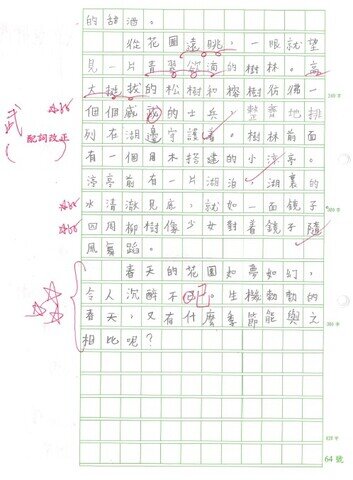 的甜酒。
從花園遠眺，一眼就望
見一片青翠欲滴的樹林。高
大挺拔的松樹和榕樹彷彿一
個個威武的士兵，整齊地排
列在湖邊守護著。樹林前面
有一個用木搭建的小涼亭。
涼亭前有一片湖泊，湖裏的
水清澈見底，就如一面鏡子
四周柳樹像少女對着鏡子隨
風舞蹈。
春天的花園如夢如幻，
令人沉醉不已。生機勃勃的
春天，又有什麼季節能與之
相比呢？
武
(配詞改正
)
已
64 號